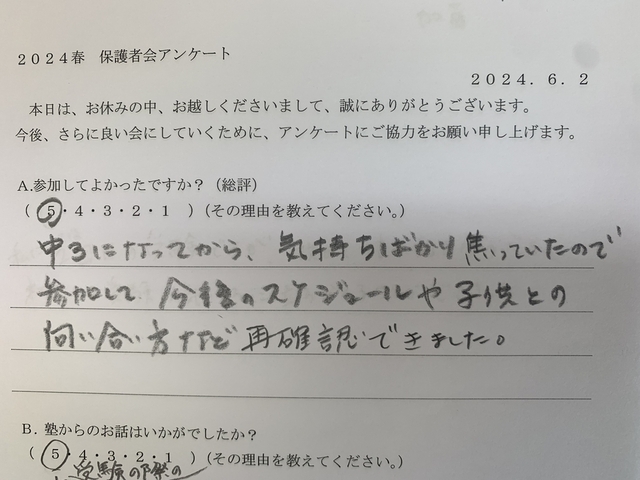 2024春 保護者会アンケート
2024.6.2
本日は、お休みの中、お越しくださいまして、誠にありがとうございます。
今後、さらに良い会にしていくために、アンケートにご協力をお願い申し上げます。
A.参加してよかったですか?(総評)
(5・4・3・2・1 )(その理由を教えてください。)
中3になってから、気持ちばかり焦っていたので
参加して今後のスケジュールや子供との
向い合い方など再確認できました。
B.塾からのお話はいかがでしたか?
(5・4・3・2・1 )(その理由を教えてください。)
受験の際の